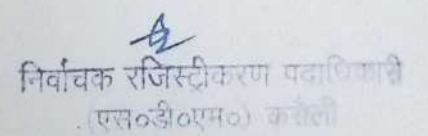 निर्वाचक रजिस्ट्रीकरण पदाधिकारी
(एस०डी०एम०) करौली